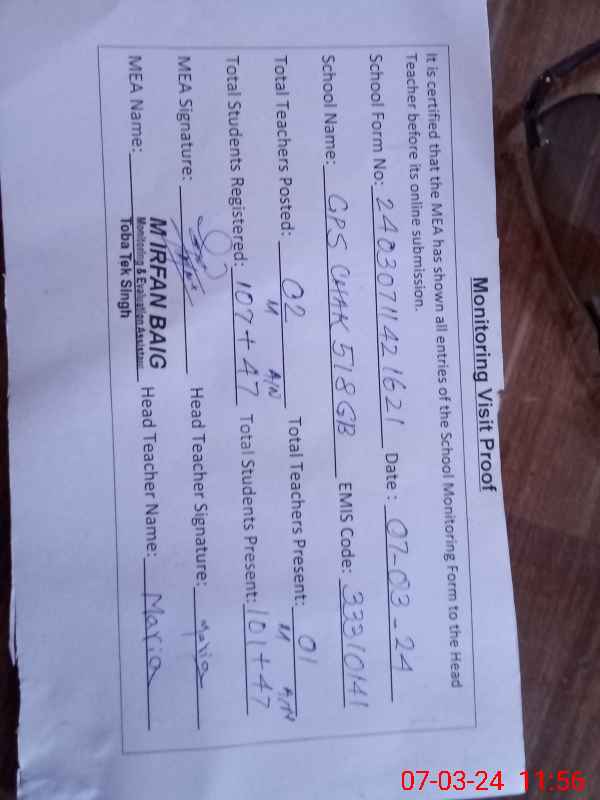 Monitoring Visit Proof
It is certified that the MEA has shown all entries of the School Monitoring Form to the Head
Teacher before its online submission.
School Form No: 24030711421621 Date: 07-03-24
School Name: GPS CHAK 518 GB EMIS Code: 33310141
Total Teachers Posted: 02 Total Teachers Present: 01
M A/N M A/N
Total Students Registered: 107+47 Total Students Present: 101+47
MEA Signature: Head Teacher Signature: Maria
MEA Name: M IRFAN BAIG Head Teacher Name: Maria
Monitoring & Evaluation Assistant
Toba Tek Singh
07-03-24 11:56